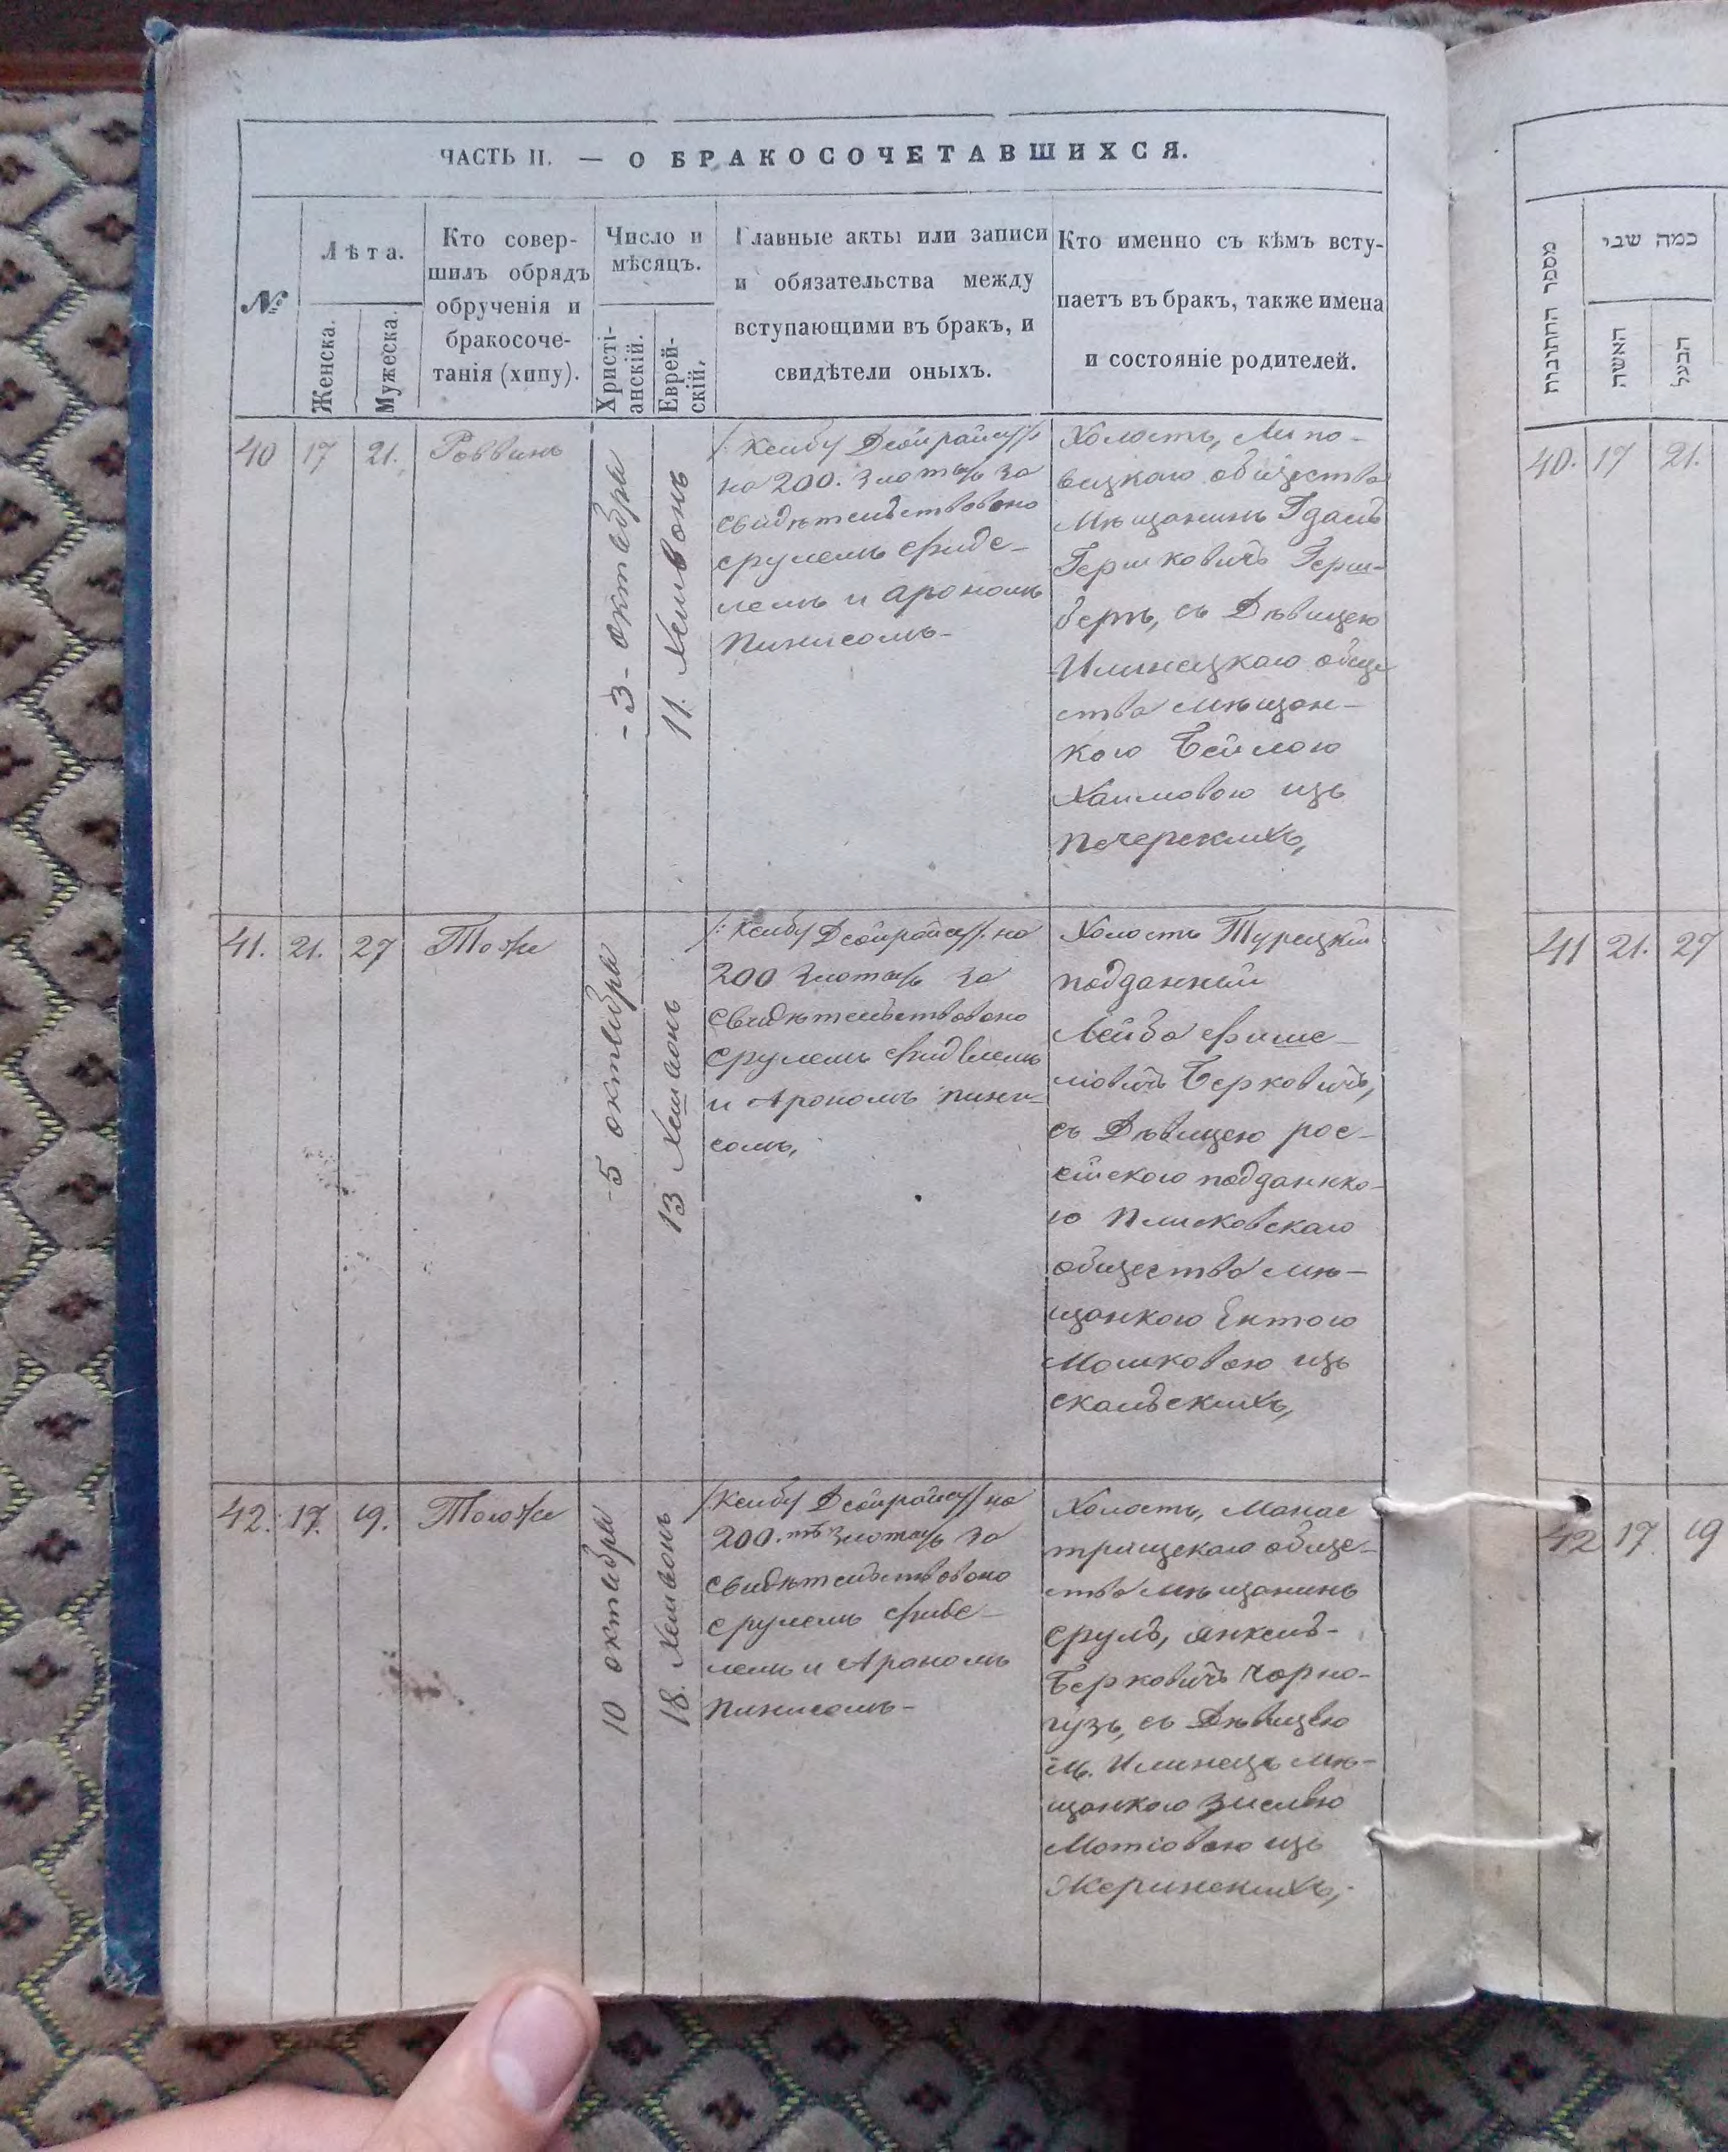 ЧАСТЬ II. — О БРАКОСОЧЕТАВШИХСЯ.
№
Лѣта.
Женска.
Мужеска.
Кто совер-
шилъ обрядъ
обрученія и
бракосоче-
танія (хипу).
Число и
мѣсяцъ.
Христі-
анскій.
Еврей-
скій.
Главные акты или записи
и обязательства между
вступающими въ бракъ, и
свидѣтели оныхъ.
Кто именно съ кѣмъ всту-
паетъ въ бракъ, также имена
и состояніе родителей.
40 17 21. Роввинъ
-3- октября
11. Хешвонъ
/: Ксибу Деойрайсу/:
на 200. злотыхъ за
свидѣтельствовано
Срулемъ Фиде-
лемъ и Арономъ
Пинисомъ-
Холостъ, Липо-
вецкаго общества
Мѣщанинъ Гдаль
Гершковичъ Герш-
берг, съ Дѣвицею
Илинецкаго обще
ства мѣщан-
кою Бейлою
Хаимовою изъ
Печерскихъ,
41. 21. 27 Тоже
-5 октября
13 Хешвонъ
/: Ксибу Деойрайсу/: на
200 злотыхъ за
свидѣтельствовано
Срулемъ Фиделемъ
и Арономъ Пини-
сомъ,
Холостъ Турецкій
подданный
Лейба Фише-
лiовичъ Берковичъ,
съ Дѣвицею рос-
сійского подданко-
ю Плисковскаго
общества мѣ-
щанкою Ентою
Мошковою изъ
скальскихъ,
42. 17. 19. Тоюже
10 октября
18. Хешвонъ
/Ксибу Деойрайсу/ на
200.тъ злотыхъ за
свидѣтельствовано
Срулемъ Фиде-
лемъ и Арономъ
Пинисомъ-
Холостъ, Монас
трищскаго обще-
ства мѣщанинъ
Сруль, Янкель-
Берковичъ Чорно-
гузъ, съ Дѣвицею
м. Илинецъ мѣ-
щанкою Зислею
Мотiовою изъ
Жеринскихъ,-
מספר החתיבות
כמה שבי
האשה
הבעל
40. 17 21.
41 21. 27
42 17. 19